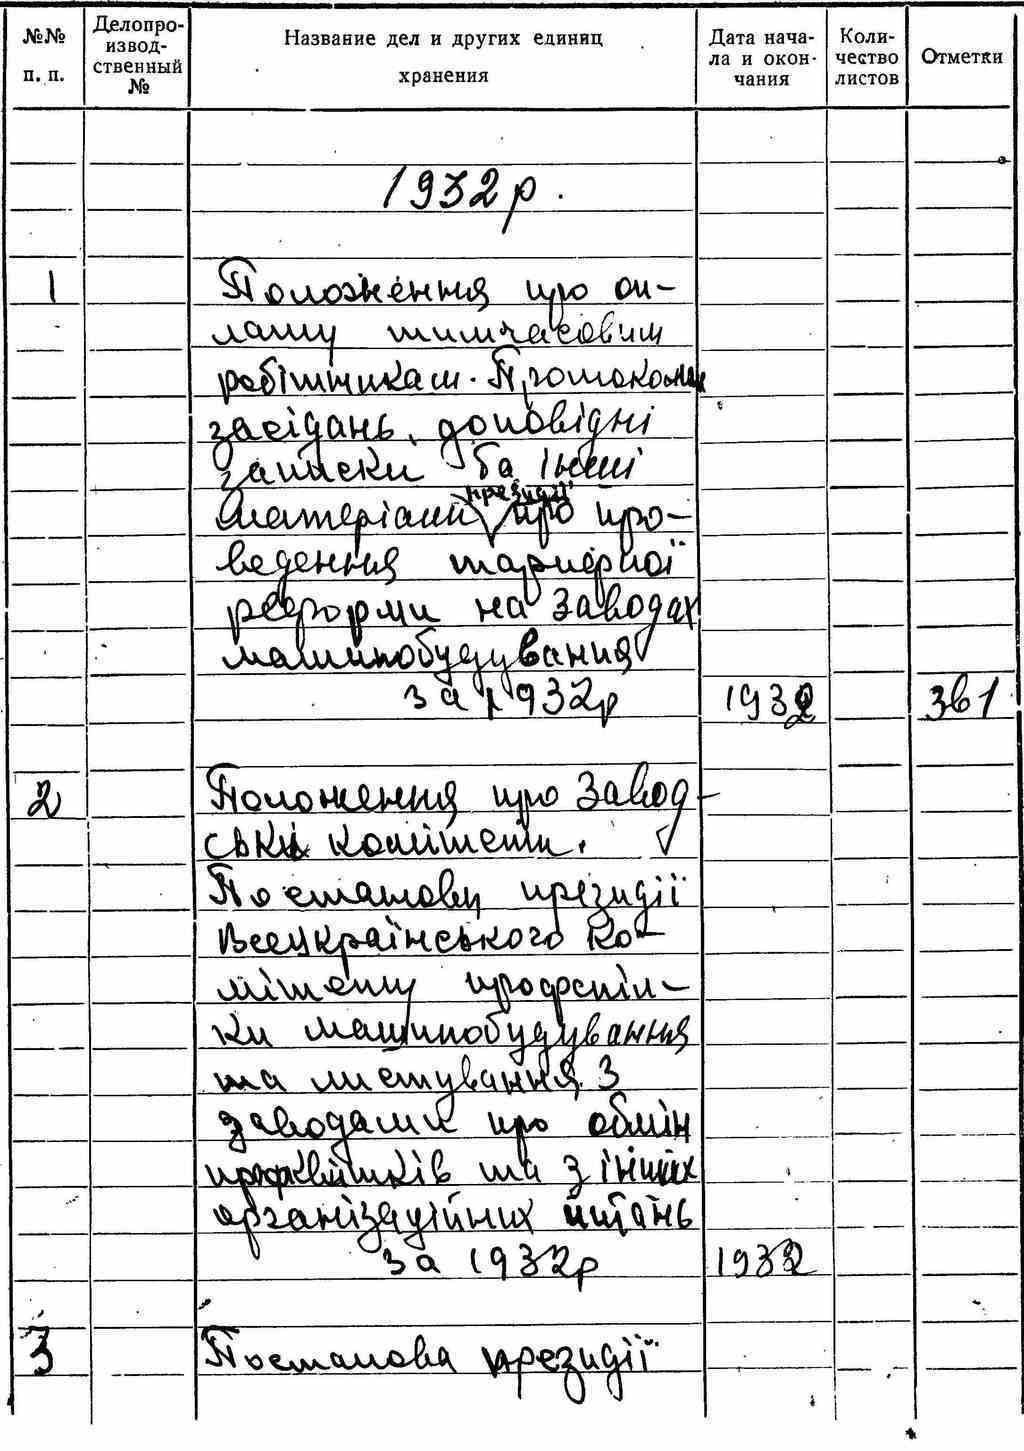 №№ п. п.
Делопро-
извод-
ственный
№
Название дел и других единиц
хранения
Дата нача-
ла и окон-
чания
Коли-
чество
листов
Отметки
1932 р.
1
Положення про оп-
лату тимчасовим
робітникам. Протоколи
засідань, доповідні
записки та інші
президії
матеріали про про-
ведення тарифної
реформи на заводах
машинобудування
за 1932 р 1932 зв 1
2 Положення про завод-
ські комітети.
Постанови президії
Всеукраїнського ко-
мітету профспіл-
ки машинобудування
та листування з
заводами про обмін
профквитків та з інших
організаційних питань
за 1932 р 1932
3 Постанова президії